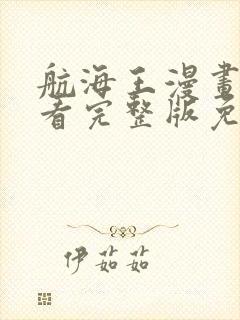 航海王漫畫
看完整版免
伊茹茹